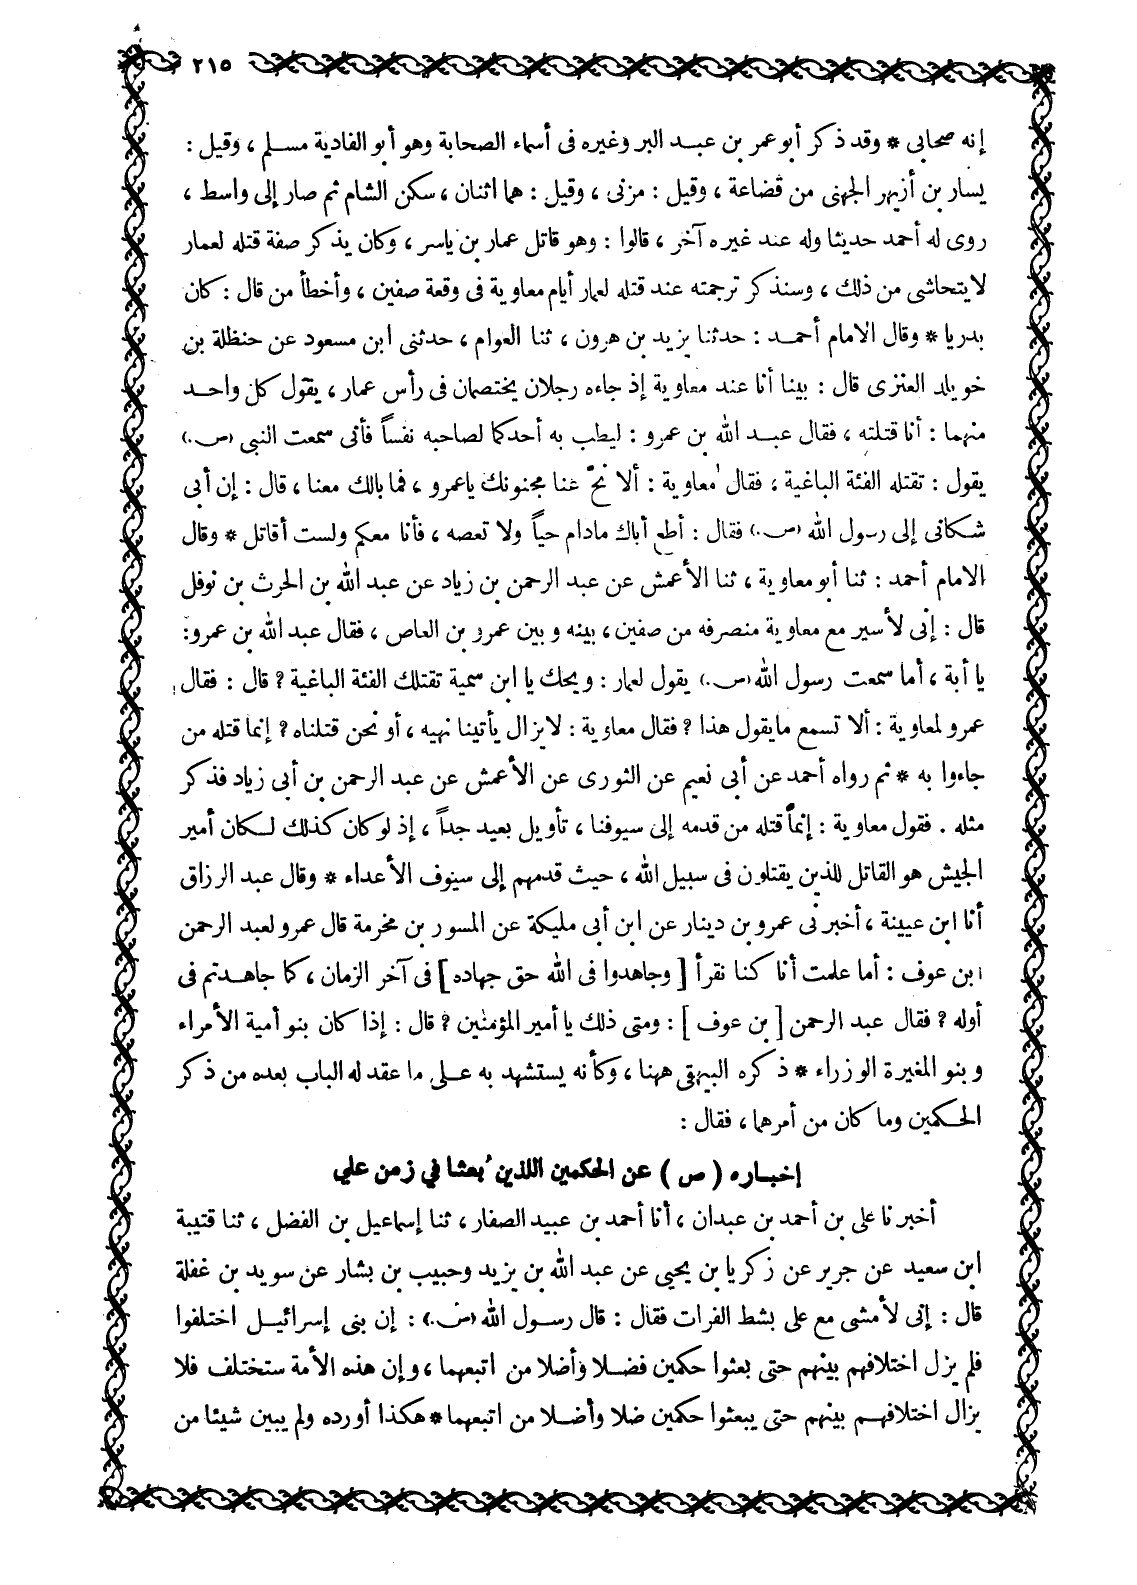 ٢١٥
إنه صحابى * وقد ذكر أبو عمر بن عبد البر وغيره فى أسماء الصحابة وهو أبو الغادية مسلم ، وقيل :
يسار بن أزيهر الجهنى من قضاعة ، وقيل : مزنى ، وقيل : هما اثنان ، سكن الشام ثم صار إلى واسط ،
روى له أحمد حديثا وله عند غيره آخر ، قالوا : وهو قاتل عمار بن ياسر ، وكان يذكر صفة قتله لعمار
لا يتحاشى من ذلك ، وسنذكر ترجمته عند قتله لعمار أيام معاوية فى وقعة صفين ، وأخطأ من قال : كان
بدريا * وقال الامام أحمد : حدثنا يزيد بن هرون ، ثنا العوام ، حدثنى ابن مسعود عن حنظلة بن
خويلد العنزى قال : بينا أنا عند معاوية إذ جاءه رجلان يختصمان فى رأس عمار ، يقول كل واحد
منهما : أنا قتلته ، فقال عبد الله بن عمرو : ليطب به أحدكما لصاحبه نفساً فأنى سمعت النبى (ص.)
يقول : تقتله الفئة الباغية ، فقال معاوية : ألا نحّ عنا مجنونك ياعمرو ، فما بالك معنا ، قال : إن أبى
شكانى إلى رسول الله (ص.) فقال : أطع أباك مادام حياً ولا تعصه ، فأنا معكم ولست أقاتل * وقال
الامام أحمد : ثنا أبو معاوية ، ثنا الأعمش عن عبد الرحمن بن زياد عن عبد الله بن الحرث بن نوفل
قال : إنى لأسير مع معاوية منصرفه من صفين ، بينه وبين عمرو بن العاص ، فقال عبد الله بن عمرو:
يا أبة ، أما سمعت رسول الله (ص.) يقول لعمار : ويحك يا ابن سمية تقتلك الفئة الباغية ? قال : فقال
عمرو لمعاوية : ألا تسمع مايقول هذا ? فقال معاوية : لايزال يأتينا نهيه ، أو نحن قتلناه ? إنما قتله من
جاءوا به * ثم رواه أحمد عن أبى نعيم عن الثورى عن الأعمش عن عبد الرحمن بن أبى زياد فذكر
مثله . فقول معاوية : إنما قتله من قدمه إلى سيوفنا ، تأويل بعيد جداً ، إذ لو كان كذلك لكان أمير
الجيش هو القاتل للذين يقتلون فى سبيل الله ، حيث قدمهم إلى سيوف الأعداء * وقال عبد الرزاق
أنا ابن عيينة ، أخبرنى عمرو بن دينار عن ابن أبى مليكة عن المسور بن مخرمة قال عمرو لعبد الرحمن
ابن عوف : أما علمت أنا كنا نقرأ [ وجاهدوا فى الله حق جهاده ] فى آخر الزمان ، كما جاهدتم فى
أوله ? فقال عبد الرحمن [ بن عوف ] : ومتى ذلك يا أمير المؤمنين ? قال : إذا كان بنو أمية الأمراء
وبنو المغيرة الوزراء * ذكره البيهقى ههنا ، وكأنه يستشهد به على ما عقد له الباب بعده من ذكر
الحكمين وما كان من أمرهما ، فقال :
إخباره ( ص ) عن الحكمين اللذين بُعثا في زمن علي
أخبرنا على بن أحمد بن عبدان ، أنا أحمد بن عبيد الصفار ، ثنا إسماعيل بن الفضل ، ثنا قتيبة
ابن سعيد عن جرير عن زكريا بن يحيى عن عبد الله بن يزيد وحبيب بن بشار عن سويد بن غفلة
قال : إنى لأمشى مع على بشط الفرات فقال : قال رسول الله (ص.) : إن بنى إسرائيل اختلفوا
فلم يزل اختلافهم بينهم حتى بعثوا حكمين فضلا وأضلا من اتبعهما ، وإن هذه الأمة ستختلف فلا
يزال اختلافهم بينهم حتى يبعثوا حكمين ضلا وأضلا من اتبعهما * هكذا أورده ولم يبين شيئا من